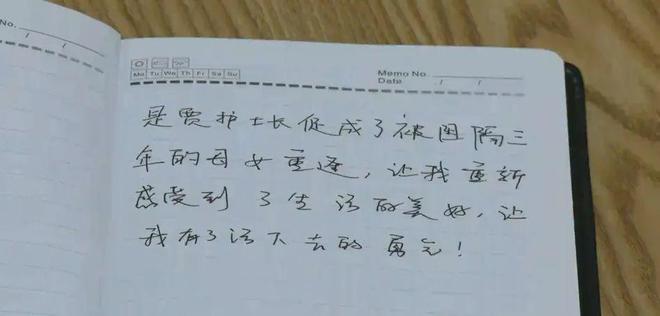 No.
/ /
Mo Tu We Th Fr Sa Su
Memo No.
Date / /
是贾护士长促成了被困隔三
年的母女重逢，让我重新
感受到了生活的美好，让
我有了活下去的勇气！